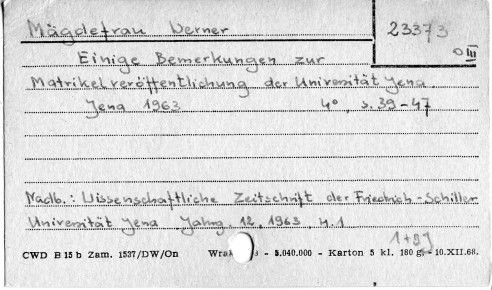 Mägdefrau Werner
23373
D III
Einige Bemerkungen zur
Matrikelveröffentlichung der Universität Jena.
Jena 1963 4°, s. 39-47
Nadb.: Wissenschaftliche Zeitschrift der Friedrich-Schiller
Universität Jena Jahrg. 12, 1963, H. 1
1+9J
CWD B 15 b Zam. 1537/DW/On - 5.040.000 - Karton 5 kl. 180 g. - 10.XII.68.